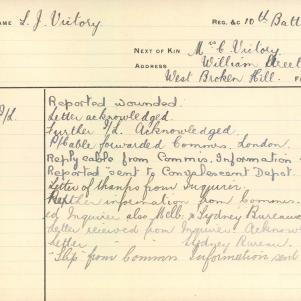 NAME L. J. Victory REG. &c 10th Batt
NEXT OF KIN Mrs C Victory.
ADDRESS William Street
West Broken Hill.
Reported wounded.
Letter acknowledged.
Further I/d. Acknowledged.
P/Cable forwarded Commrs. London.
Reply cable from Commis. Information
Reported "sent to Convalescent Depot.
Letter of thanks from Inquirer.
Further information from Commrs.
ed Inquirer also Melb. & Sydney Bureaux
Letter received from Inquirer. Acknow
Letter " " Sydney Bureau.
"Slip" from Commrs. Information sent